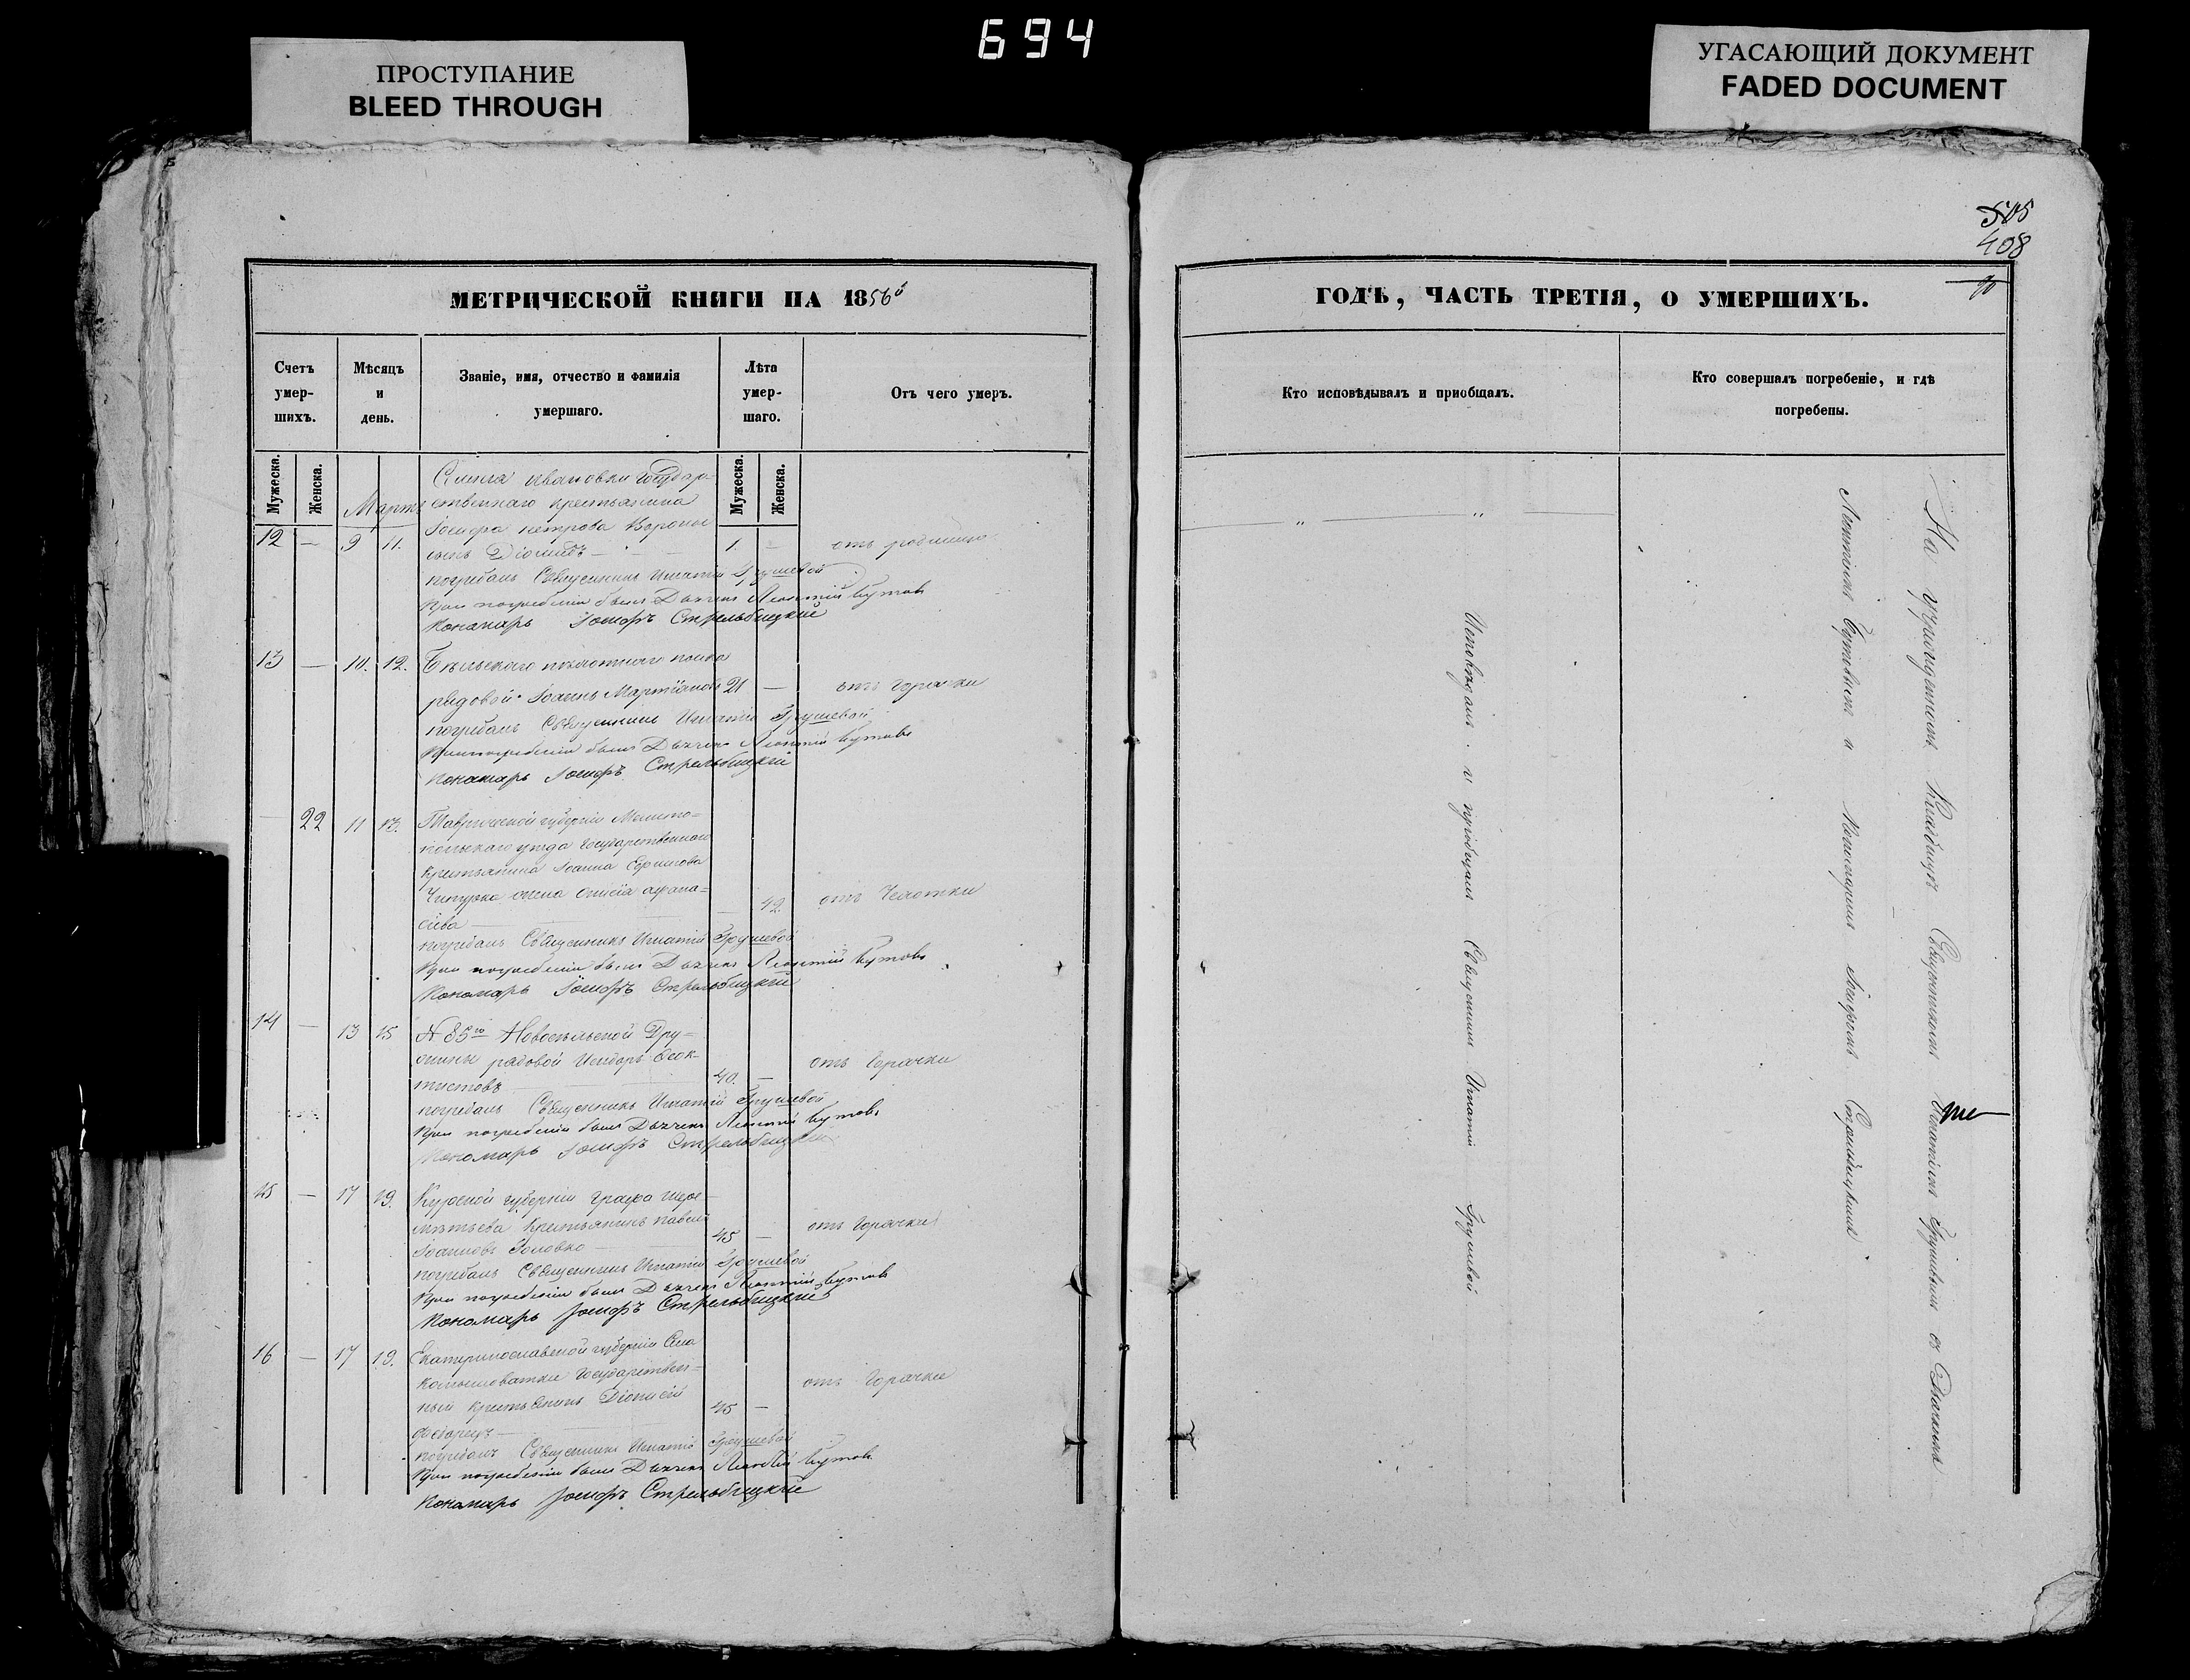 694
ПРОСТУПАНИЕ
BLEED THROUGH
УГАСАЮЩИЙ ДОКУМЕНТ
FADED DOCUMENT
505
408
МЕТРИЧЕСКОЙ КНИГИ НА 1856й
Счетъ умер-шихъ.
Мѣсяцъ и день.
Званіе, имя, отчество и фамилія умершаго.
Лѣта умер-шаго.
Отъ чего умеръ.
Мужеска.
Женска.
Мужеска.
Женска.
Мартъ
Ивановки Государ-
ственнаго крестьянина
Іосифа Петрова
12 — 9 11. сынъ Діомидъ — 1. — отъ родимца
погребалъ Священникъ Игнатій Грушевой
При погребеніи былъ Дьячекъ Леонтій Бутовъ
Пономарь Іосифъ Стрельбицкій
13 — 10. 12. Бѣльскаго пѣхотнаго полка
рядовой Іоаннъ Мартиновъ 21 — отъ Горячки
погребалъ Священникъ Игнатій Грушевой
При погребеніи былъ Дьячекъ Леонтій Бутовъ
Пономарь Іосифъ Стрельбицкій
— 22 11 13. Таврической губерніи Мелито-
польскаго уѣзда Государственнаго
крестьянина Іоанна
жена Анисія Афана-
сіева — 42. отъ Чехотки
погребалъ Священникъ Игнатій Грушевой
При погребеніи былъ Дьячекъ Леонтій Бутовъ
Пономарь Іосифъ Стрельбицкій
14 — 13 15 № 85го Новосильской Дру-
жины рядовой Исидоръ Феок-
тистовъ 40. — отъ Горячки
погребалъ Священникъ Игнатій Грушевой
При погребеніи былъ Дьячекъ Леонтій Бутовъ
Пономарь Іосифъ Стрельбицкій
15 — 17 19. Курской губерніи графа Шере-
мѣтьева Крестьянинъ Павелъ
Іоанновъ Головко 45 — отъ Горячки
погребалъ Священникъ Игнатій Грушевой
При погребеніи былъ Дьячекъ Леонтій Бутовъ
Пономарь Іосифъ Стрельбицкій
16 — 17 19. Екатеринославской губерніи Села
Камышоватки Государствен-
ный крестьянинъ Діонисій
45 — отъ Горячки
погребалъ Священникъ Игнатій Грушевой
При погребеніи былъ Дьячекъ Леонтій Бутовъ
Пономарь Іосифъ Стрельбицкій
ГОДЪ, ЧАСТЬ ТРЕТІЯ, О УМЕРШИХЪ.
Кто исповѣдывалъ и пріобщалъ.
Кто совершалъ погребеніе, и гдѣ погребены.
Исповѣдалъ и пріобщалъ Священникъ Игнатій Грушевой
На Кладбищѣ Священникомъ Игнатіемъ Грушевымъ съ Дьячкомъ
Леонтіемъ Бутовымъ и Пономаремъ Іосифомъ Стрельбицкимъ